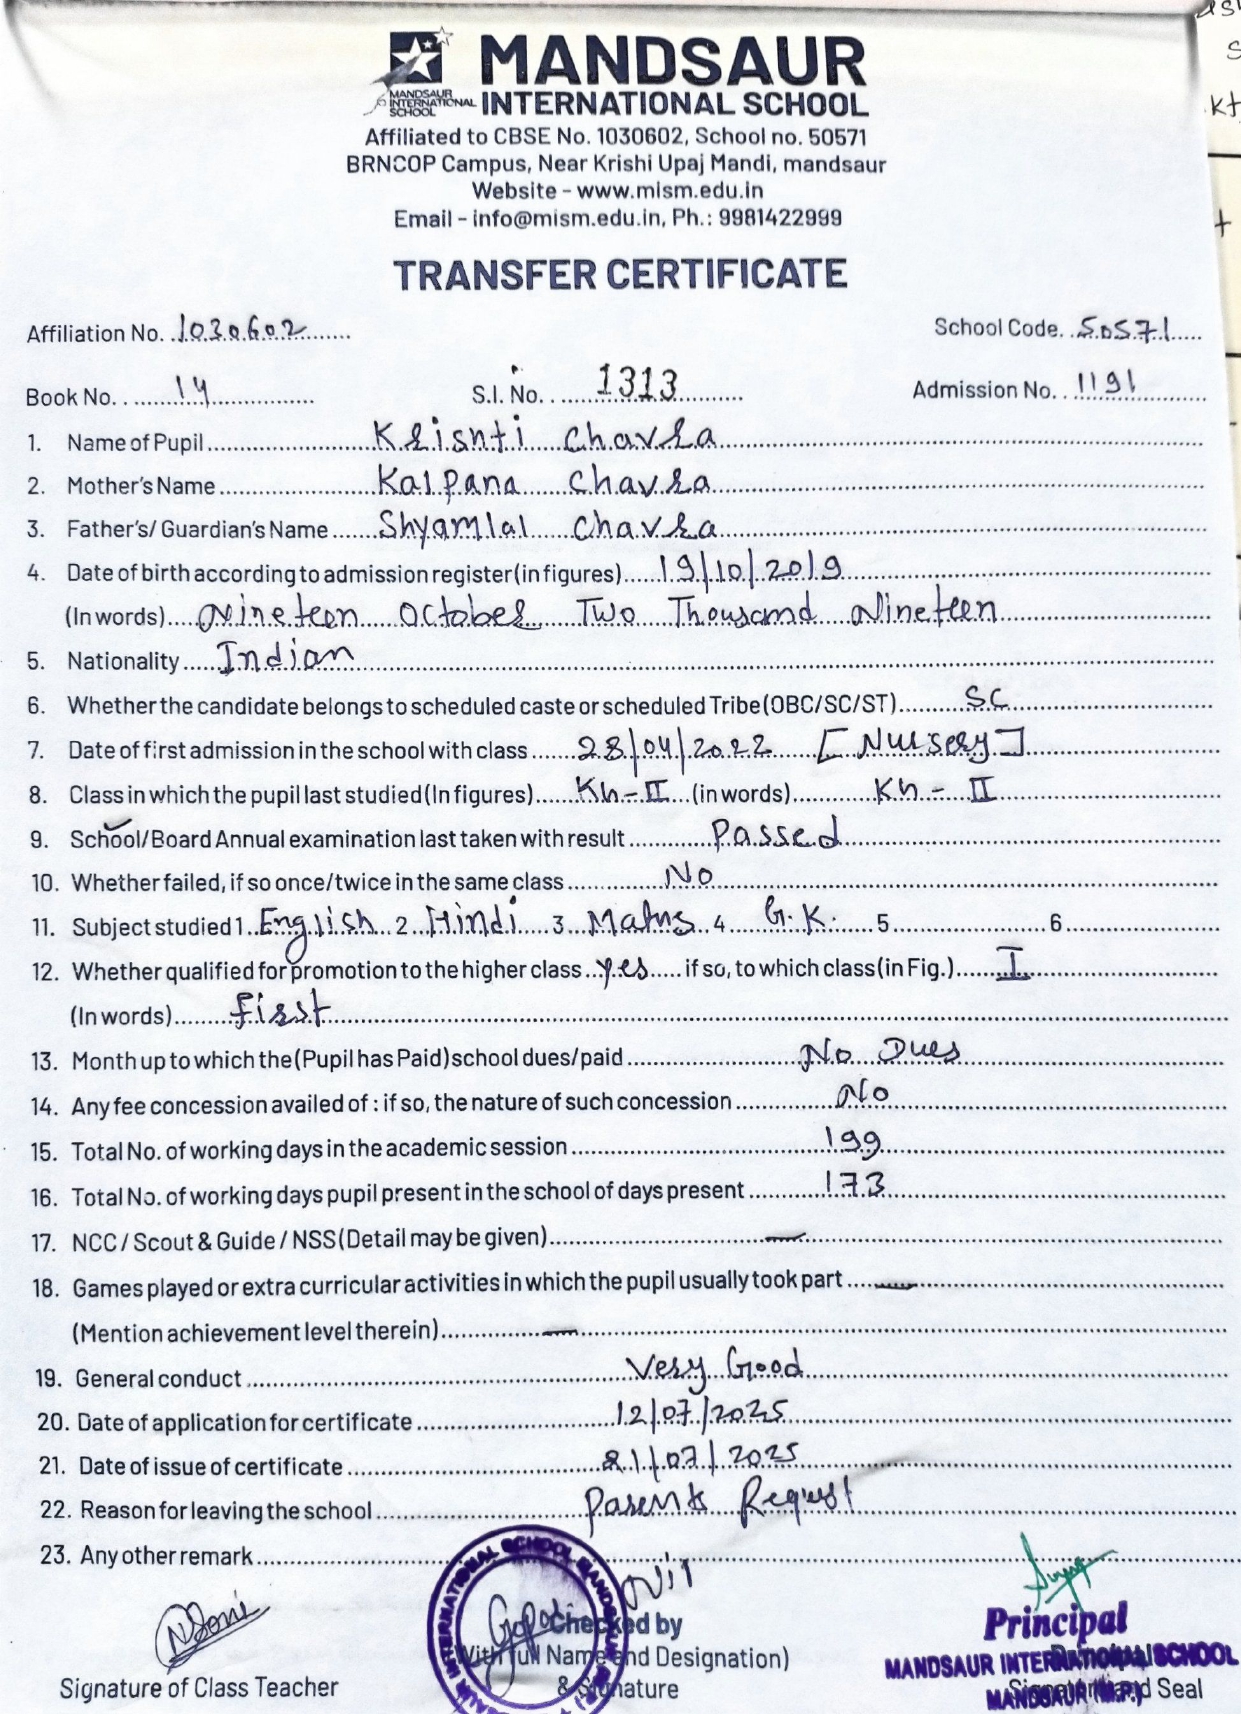 MANDSAUR
INTERNATIONAL SCHOOL
MANDSAUR
INTERNATIONAL
SCHOOL
Affiliated to CBSE No. 1030602, School no. 50571
BRNCOP Campus, Near Krishi Upaj Mandi, mandsaur
Website - www.mism.edu.in
Email - info@mism.edu.in, Ph.: 9981422999
TRANSFER CERTIFICATE
Affiliation No. 1030602 School Code. 50571
Book No. 14 S.I. No. 1313 Admission No. 1191
1. Name of Pupil Krisnti Chavra
2. Mother's Name Kalpana Chavra
3. Father's/ Guardian's Name Shyamlal Chavra
4. Date of birth according to admission register (in figures) 19/10/2019
(In words) Nineteen October Two Thousand Nineteen
5. Nationality Indian
6. Whether the candidate belongs to scheduled caste or scheduled Tribe (OBC/SC/ST) SC
7. Date of first admission in the school with class 28/04/2022 [Nursery]
8. Class in which the pupil last studied (In figures) KG-II (in words) KG - II
9. School/Board Annual examination last taken with result Passed
10. Whether failed, if so once/twice in the same class No
11. Subject studied 1 English 2 Hindi 3 Maths 4 G.K. 5 6
12. Whether qualified for promotion to the higher class yes if so, to which class (in Fig.) I
(In words) first
13. Month up to which the (Pupil has Paid) school dues/paid No Dues
14. Any fee concession availed of : if so, the nature of such concession No
15. Total No. of working days in the academic session 199
16. Total No. of working days pupil present in the school of days present 173
17. NCC / Scout & Guide / NSS (Detail may be given) —
18. Games played or extra curricular activities in which the pupil usually took part —
(Mention achievement level therein) —
19. General conduct Very Good
20. Date of application for certificate 12/07/2025
21. Date of issue of certificate 21/07/2025
22. Reason for leaving the school Parents Request
23. Any other remark Nil
Checked by
(With full Name and Designation)
& Signature
Signature of Class Teacher
Principal
MANDSAUR INTERNATIONAL SCHOOL
MANDSAUR (M.P.)
Seal